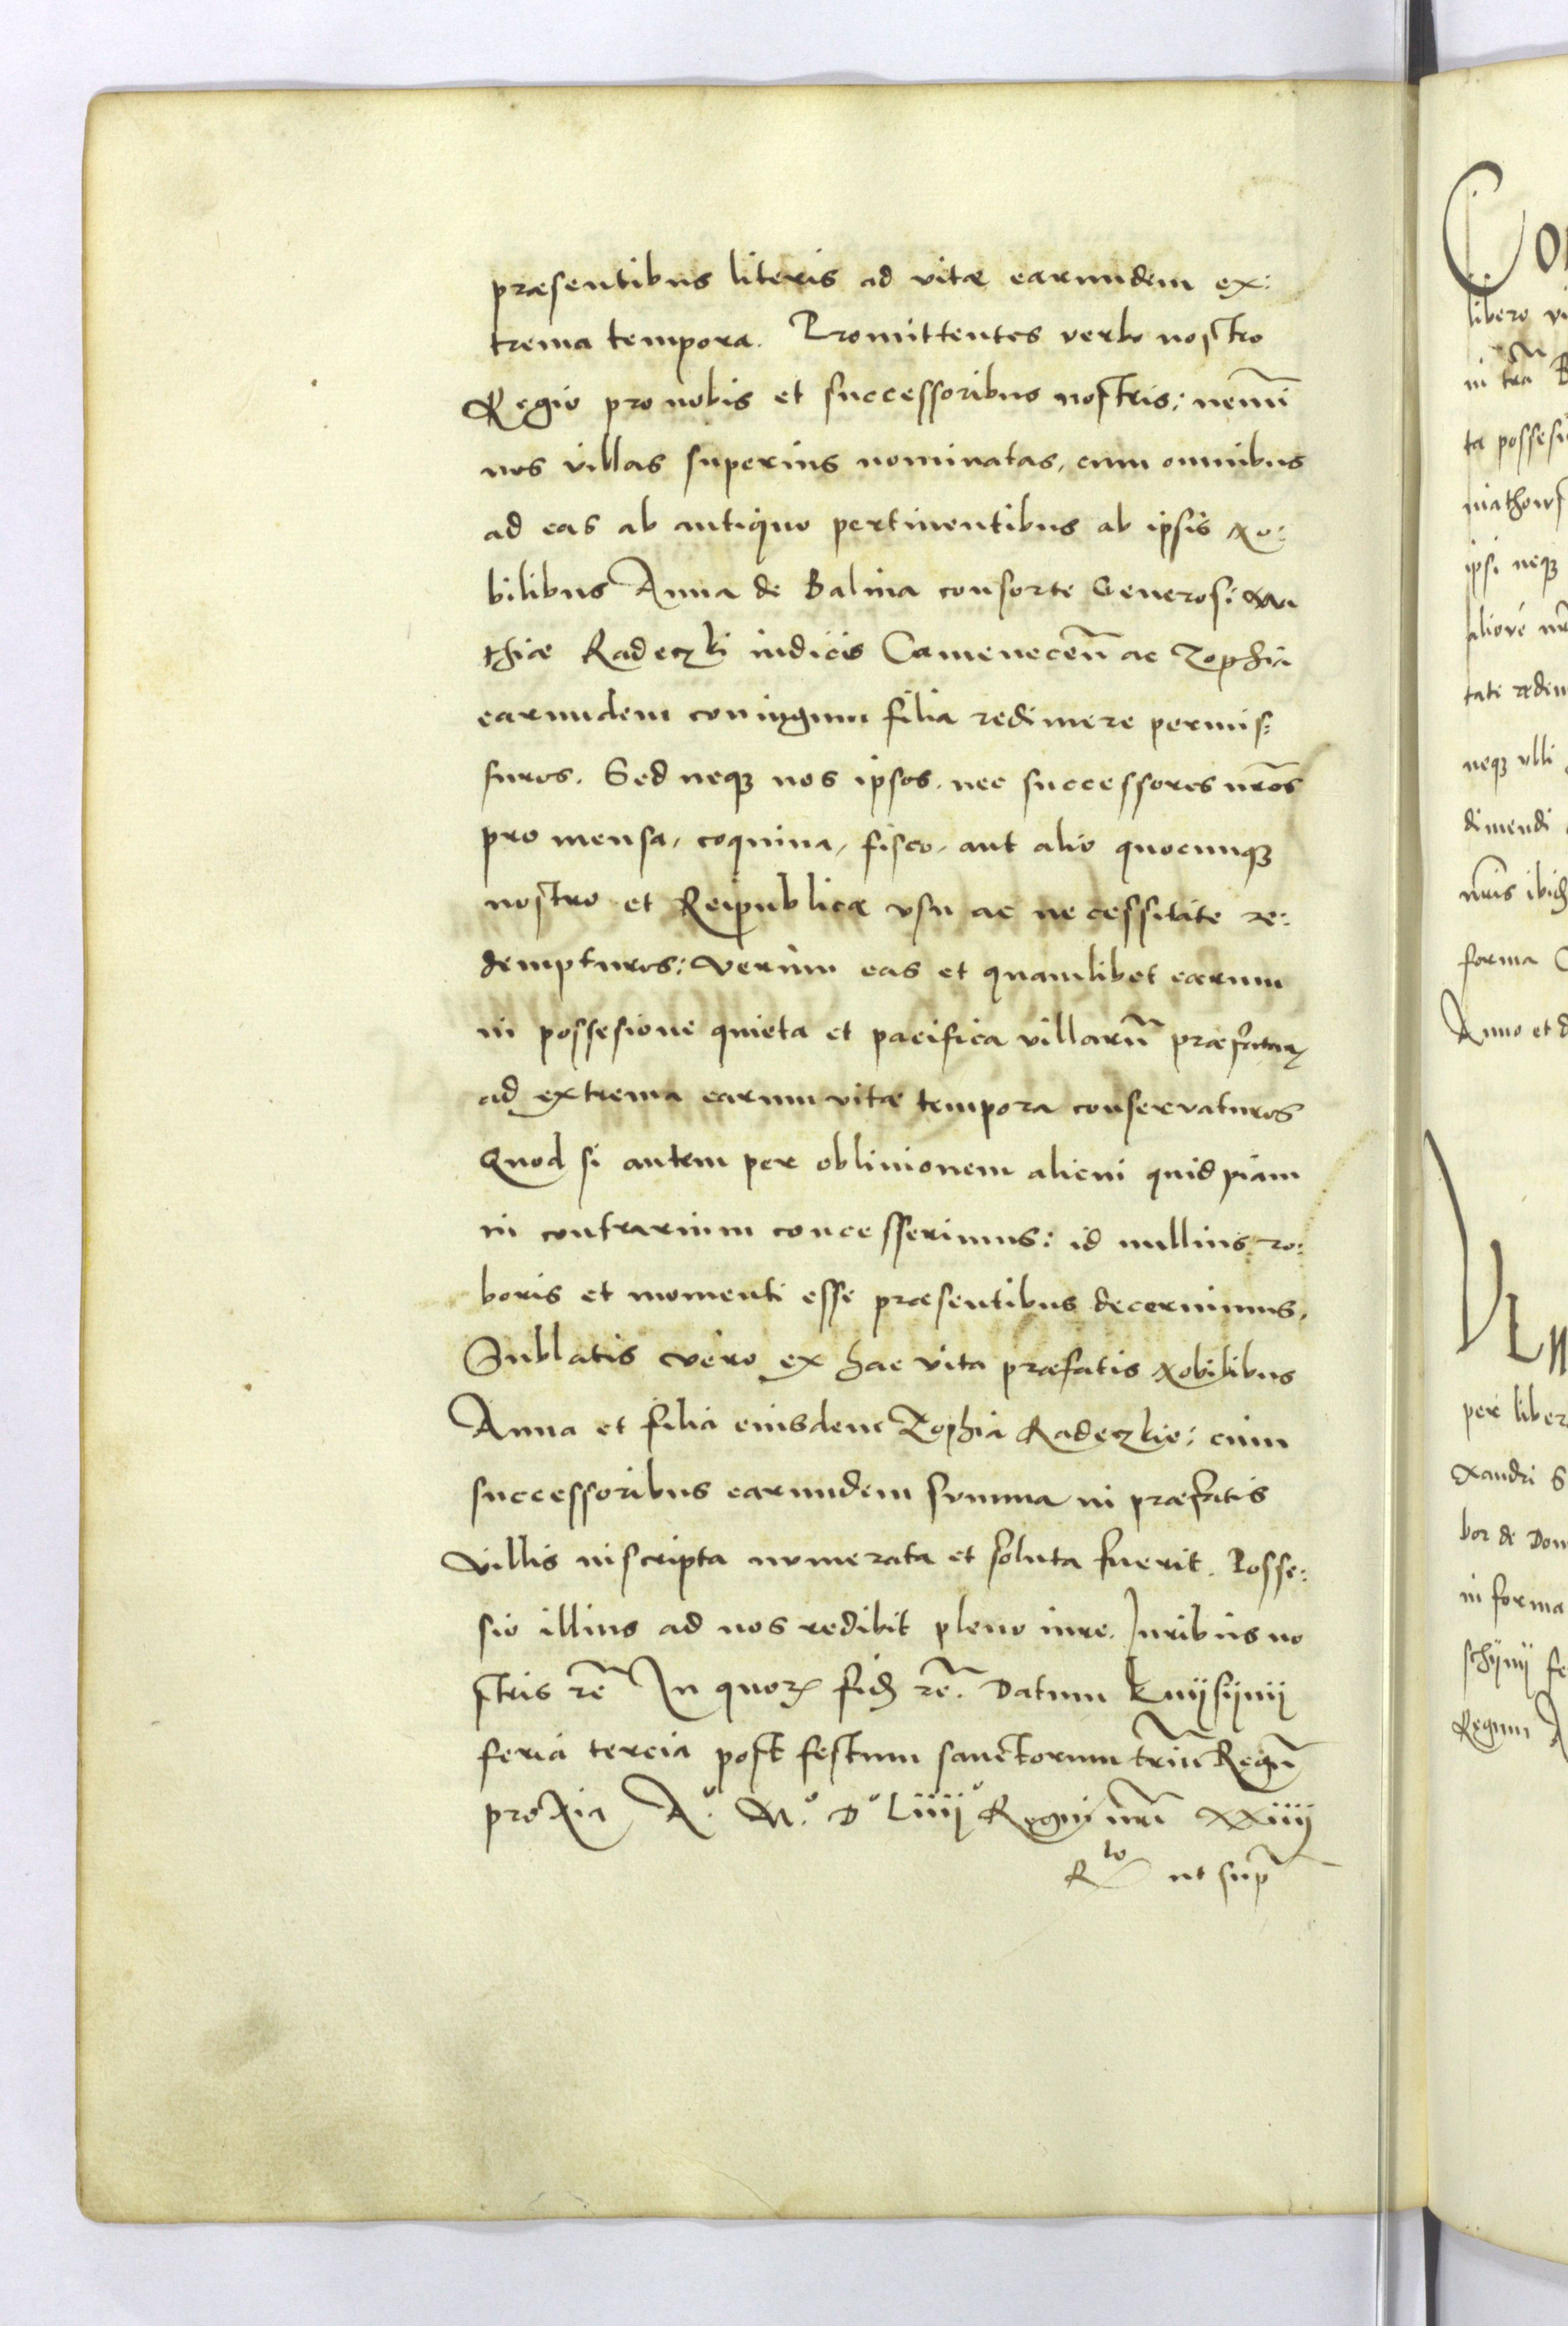 præsentibus literis ad vitæ earundem ex:
trema tempora. Promittentes verbo nostro
Regio pro nobis et successoribus nostris: nemi͠
nos villas superius nominatas, cum omnibus
ad eas ab antiquo pertinentibus ab ipsis No:
bilibus Anna de Balina consorte Generosi Ma
thiæ Radeczki iudicis Camenecen͠ ac Zophia
earundem coniugum filia redimere permis:
suros. Sed neqꝫ nos ipsos, nec successores nr͠os
pro mensa, coquina, fisco, aut alio quocunqꝫ
nostro et Reipublicæ vsu ac necessitate re:
dempturos: Verum eas et quamlibet earum
in possesione quieta et pacifica villaru͠ præfataꝝ
ad extrema earum vitæ tempora conservaturos
Quod si autem per oblivionem alicui quidpiam
in contrarium concesserimus: id nullius ro:
boris et momenti esse præsentibus decernimus.
Sublatis vero ex hac vita præfatis Nobilibus
Anna et filia eiusdem Zophia Radeczkie: cum
successoribus earundem summa in præfatis
Villis inscripta numerata et soluta fuerit. Posse:
sio illius ad nos redibit pleno iure. Juribus no
stris rc͠ In quoꝝ fidꝫ rc͠. Datum Knijsijnij
feria tercia post festum sanctorum triu͠ Regu͠
proxia Aº. Mº. Dº Liiijº Regni nr͠i XXiiij
Rto ut sup͠
Co
libero vi
in tra B
ta possesi
niathows
ipsi neqꝫ
aliore nr͠
tate redim
neqꝫ ulli
dimendi
nr͠is ibidꝫ
forma C
Anno et d
per liber
xandri S
bor de Dom
in forma
schijnij fe
Regum A